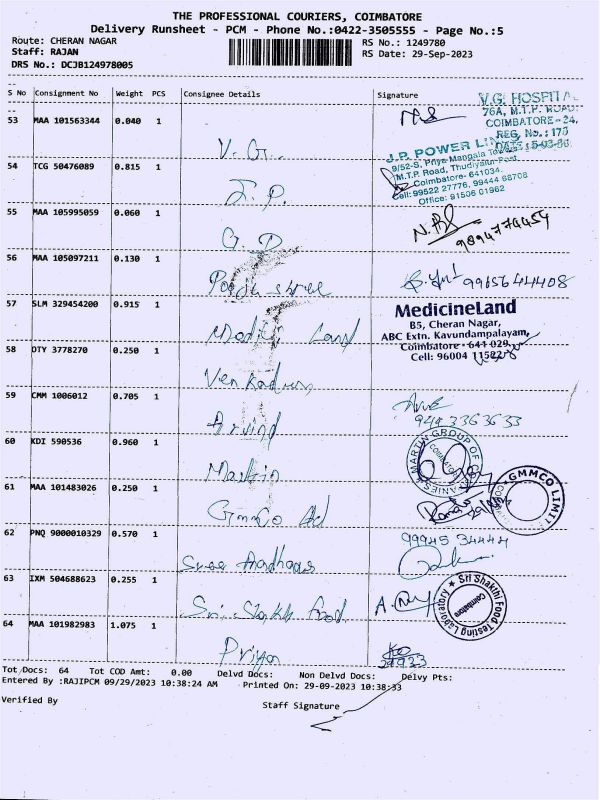 THE PROFESSIONAL COURIERS, COIMBATORE
Delivery Runsheet - PCM - Phone No.:0422-3505555 - Page No.:5
Route: CHERAN NAGAR RS No.: 1249780
Staff: RAJAN RS Date: 29-Sep-2023
DRS No.: DCJB124978005
S No Consignment No Weight PCS Consignee Details Signature
V.G. HOSPITAL
76A, M.T.P. ROAD
COIMBATORE-24,
53 MAA 101563344 0.040 1 V. G.
J.P. POWER
9/52-S, Priya Mangala
M.T.P. Road, Thudiyalur-Post,
Coimbatore- 641034.
Cell: 99522 27776, 99444 66708
Office: 81506 01962
54 TCG 50476089 0.815 1 J. P.
55 MAA 105995059 0.060 1 G. D
56 MAA 105097211 0.130 1 Pooja shree 9965644408
57 SLM 329454200 0.915 1 Medicin Land
MedicineLand
B5, Cheran Nagar,
ABC Extn. Kavundampalayam,
Coimbatore - 641 029.
Cell: 96004
58 DTY 3778270 0.250 1
59 CMM 1006012 0.705 1 Arvind 9443363633
60 KDI 590536 0.960 1 Martin
MARTIN GROUP OF COMPANIES
COIMBATORE
61 MAA 101483026 0.250 1 Gmmco ltd
GMMCO LIMIT
62 PNQ 9000010329 0.570 1 Sree 99945 34444
63 IXM 504688623 0.255 1 Sri Shakthi food
Sri Shakthi Food Testing Laboratory
Coimbatore
64 MAA 101982983 1.075 1 Priya
Tot Docs: 64 Tot COD Amt: 0.00 Delvd Docs: Non Delvd Docs: Delvy Pts:
Entered By :RAJIPCM 09/29/2023 10:38:24 AM Printed On: 29-09-2023 10:38:33
Verified By Staff Signature